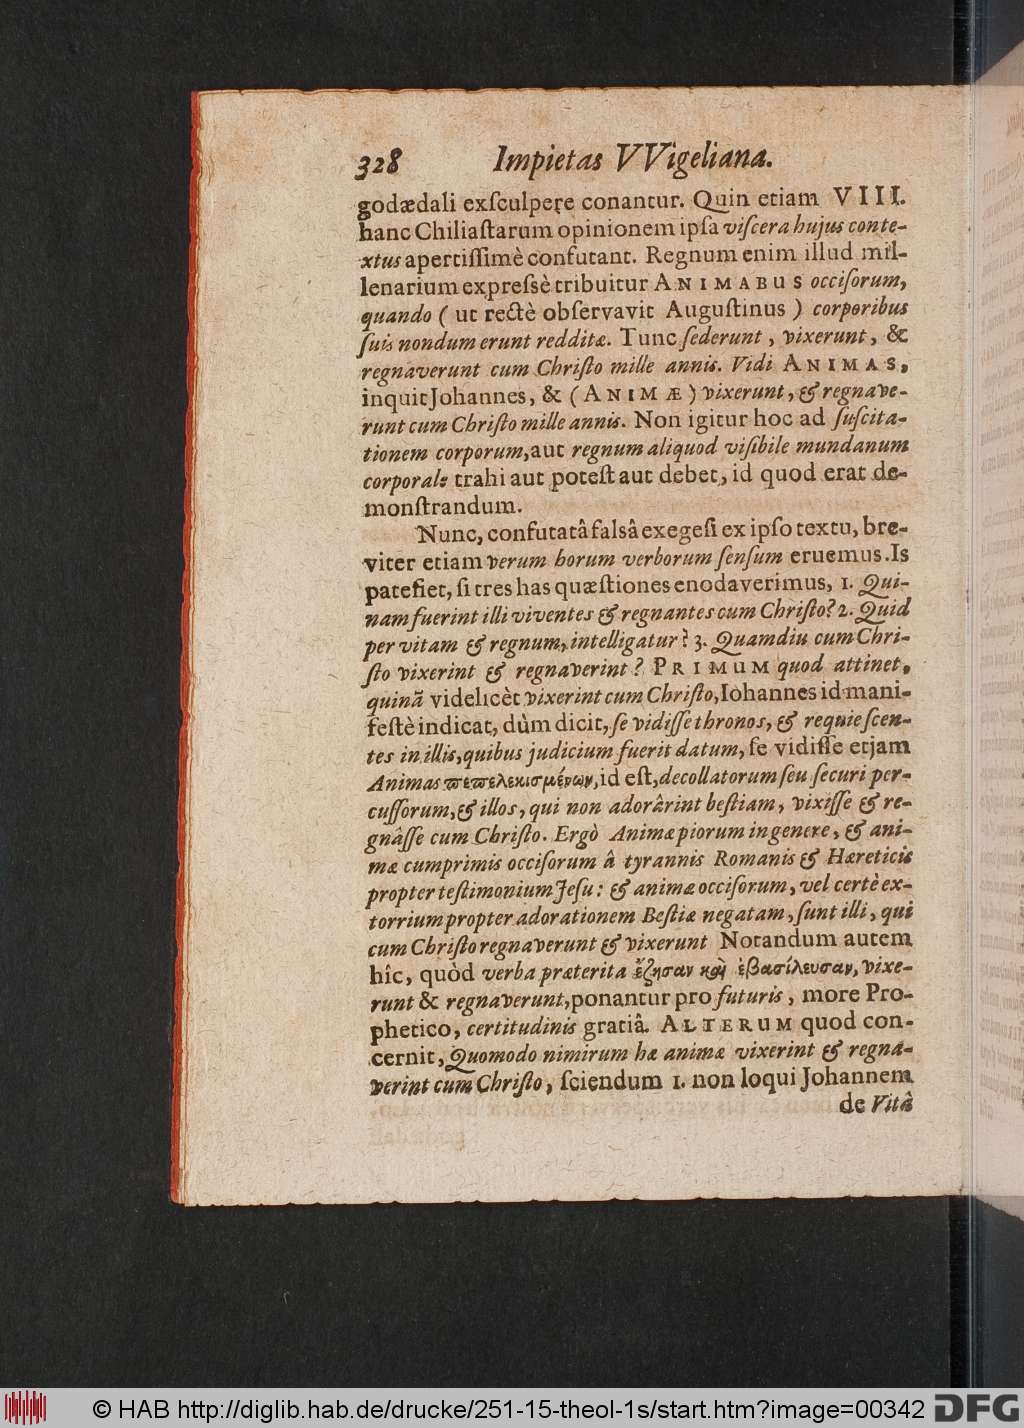 328 Impietas VVigeliana.
godædali exſculpere conantur. Quin etiam VIII.
hanc Chiliaſtarum opinionem ipſa viſcera hujus conte-
xtus apertiſſimè confutant. Regnum enim illud mil-
lenarium expreſsè tribuitur ANIMABUS occiſorum,
quando ( ut rectè obſervavit Auguſtinus ) corporibus
ſuis nondum erunt redditæ. Tunc ſederunt, vixerunt, &
regnaverunt cum Chriſto mille annis. Vidi ANIMAS,
inquit Johannes, & (ANIMÆ) vixerunt, & regnave-
runt cum Chriſto mille annis. Non igitur hoc ad ſuſcita-
tionem corporum, aut regnum aliquod viſibile mundanum
corporale trahi aut poteſt aut debet, id quod erat de-
monſtrandum.
Nunc, confutatâ falsâ exegeſi ex ipſo textu, bre-
viter etiam verum horum verborum ſenſum eruemus. Is
patefiet, ſi tres has quæſtiones enodaverimus, 1. Qui-
nam fuerint illi viventes & regnantes cum Chriſto? 2. Quid
per vitam & regnum, intelligatur? 3. Quamdiu cum Chri-
ſto vixerint & regnaverint? PRIMUM quod attinet,
quinã videlicèt vixerint cum Chriſto, Iohannes id mani-
feſtè indicat, dùm dicit, ſe vidiſſe thronos, & requieſcen-
tes in illis, quibus judicium fuerit datum, ſe vidiſſe etjam
Animas πεπελεκισμένων, id eſt, decollatorum ſeu ſecuri per-
cuſſorum, & illos, qui non adorârint beſtiam, vixiſſe & re-
gnâſſe cum Chriſto. Ergò Animæ piorum in genere, & ani-
mæ cumprimis occiſorum â tyrannis Romanis & Hæreticis
propter teſtimonium Jeſu: & animæ occiſorum, vel certè ex-
torrium propter adorationem Beſtiæ negatam, ſunt illi, qui
cum Chriſto regnaverunt & vixerunt Notandum autem
hîc, quòd verba præterita ἔζησαν καὶ ἐβασίλευσαν, vixe-
runt & regnaverunt, ponantur pro futuris, more Pro-
phetico, certitudinis gratiâ. ALTERUM quod con-
cernit, Quomodo nimirum hæ animæ vixerint & regna-
verint cum Chriſto, ſciendum 1. non loqui Johannem
de Vitâ
© HAB http://diglib.hab.de/drucke/251-15-theol-1s/start.htm?image=00342
DFG